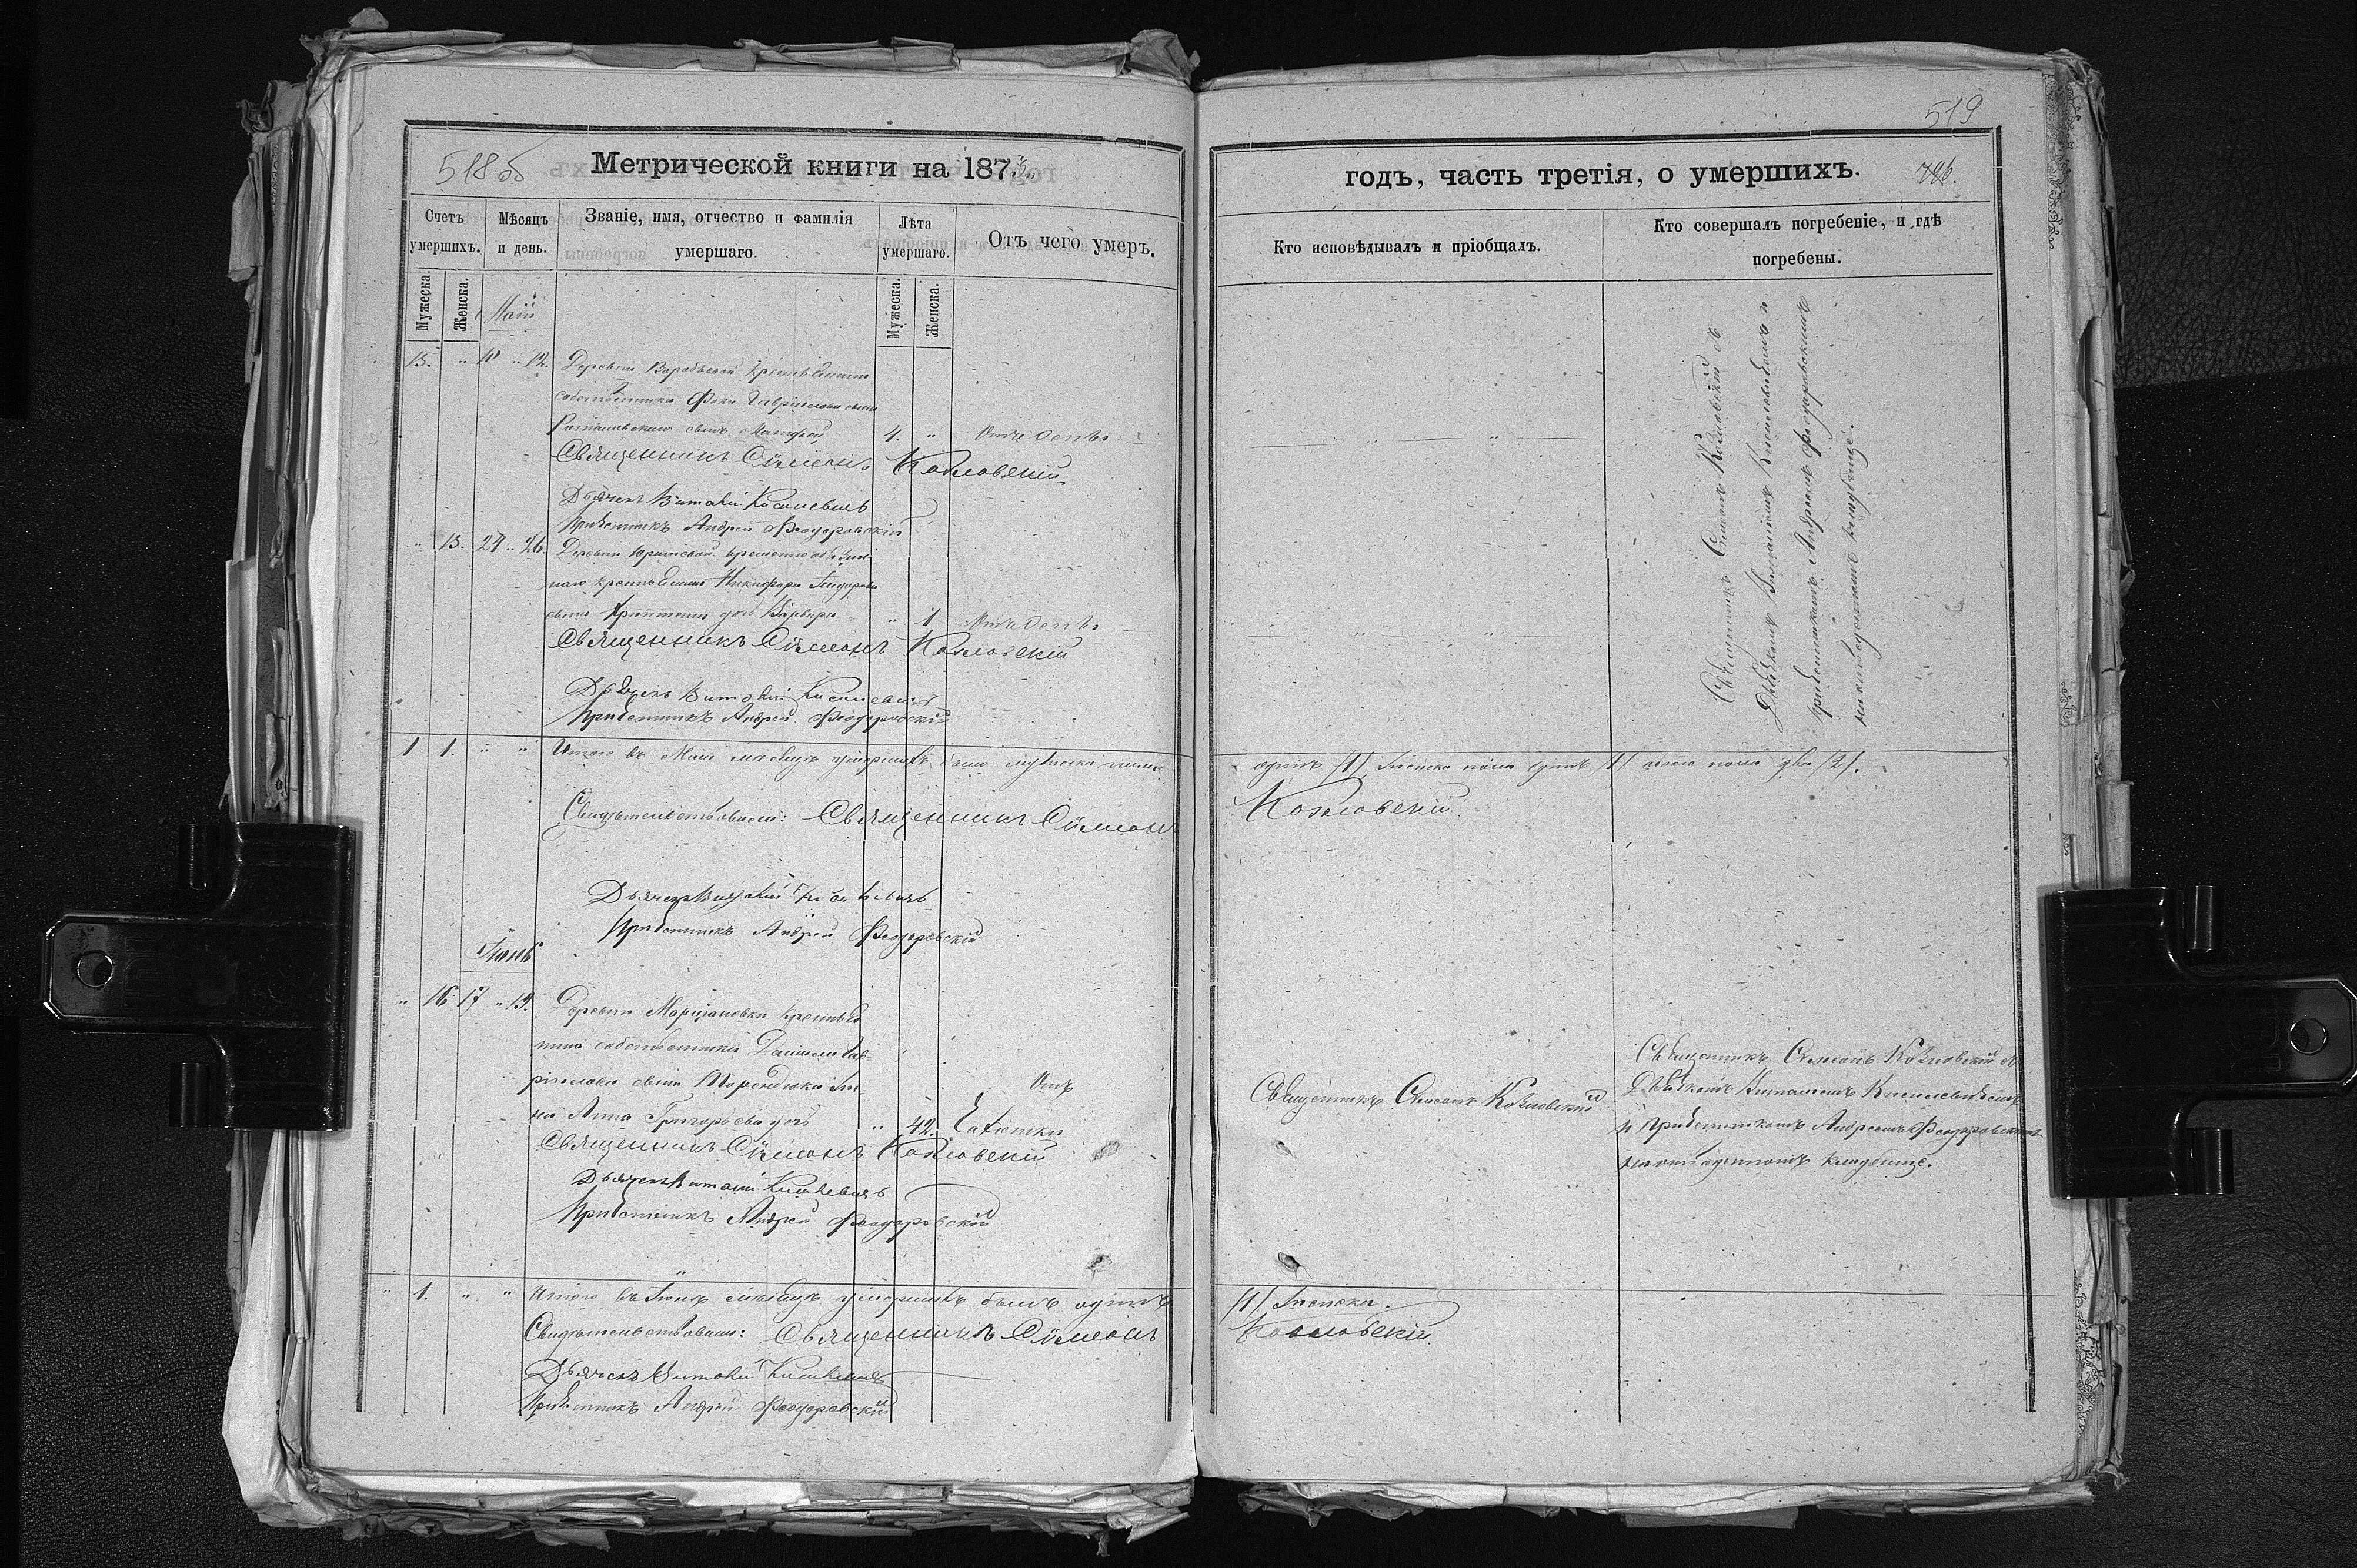 518об
Метрической книги на 1873
Счетъ умершихъ.
Мѣсяцъ и день.
Званіе, имя, отчество и фамилія умершаго.
Лѣта умершаго.
Отъ чего умеръ.
Мужеска.
Женска.
Мужеска.
Женска.
Май
15. " 10 " 12. Деревни
собственника Фоки сына
сынъ 4. " Отъ оспы
Священникъ Сѵмеонъ Козловскій
Дьячекъ Виталій Кисилевичъ
Причетникъ Андрей Феодоровскій
" 15. 24 " 26. Деревни
Никифора
сына дочь Варвара " 1 Отъ оспы
Священникъ Сѵмеонъ Козловскій
Дьячекъ Виталій Кисилевичъ
Причетникъ Андрей Феодоровскій
1 1. " " Итого въ Маѣ мѣсяцѣ умершихъ было мужеска пола
Свидѣтельствовали: Священникъ Сѵмеонъ
Дьячекъ Виталій Кисилевичъ
Причетникъ Андрей Феодоровскій
Іюнь
" 16 17 " 19. Деревни Марціановки крестья
нина собственника Даніила Гав
ріилова сына же
на Анна Григорьева дочь " 42. Отъ
Священникъ Сѵмеонъ Козловскій
Дьячекъ Виталій Кисилевичъ
Причетникъ Андрей Феодоровскій
" 1. " " Итого въ Іюнѣ мѣсяцѣ умершихъ былъ одинъ
Свидѣтельствовали: Священникъ Сѵмеонъ
Дьячекъ Виталій Кисилевичъ
Причетникъ Андрей Феодоровскій
519
годъ, часть третія, о умершихъ.
Кто исповѣдывалъ и пріобщалъ.
Кто совершалъ погребеніе, и гдѣ погребены.
Священникъ Симеонъ Козловскій съ
Дьячкомъ Виталіемъ Кисилевичемъ и
причетникомъ Андреемъ Феодоровскимъ
кладбищѣ.
одинъ /1/ женска пола одинъ /1/ обоего пола два /2/.
Козловскій
Священникъ Симеонъ Козловскій
Священникъ Симеонъ Козловскій съ
Дьячкомъ Виталіемъ Кисилевичемъ
и Причетникомъ Андреемъ Феодоровскимъ
кладбищѣ.
/1/ Женска.
Козловскій